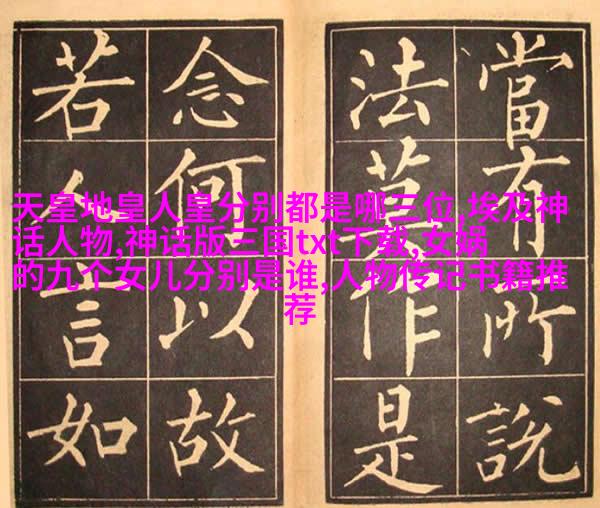 當有所說
法莫作是
念何以故
若人言如
天皇地皇人皇分别都是哪三位,埃及神
话人物,神话版三国txt下载,女娲
的九个女儿分别是谁,人物传记书籍推
荐